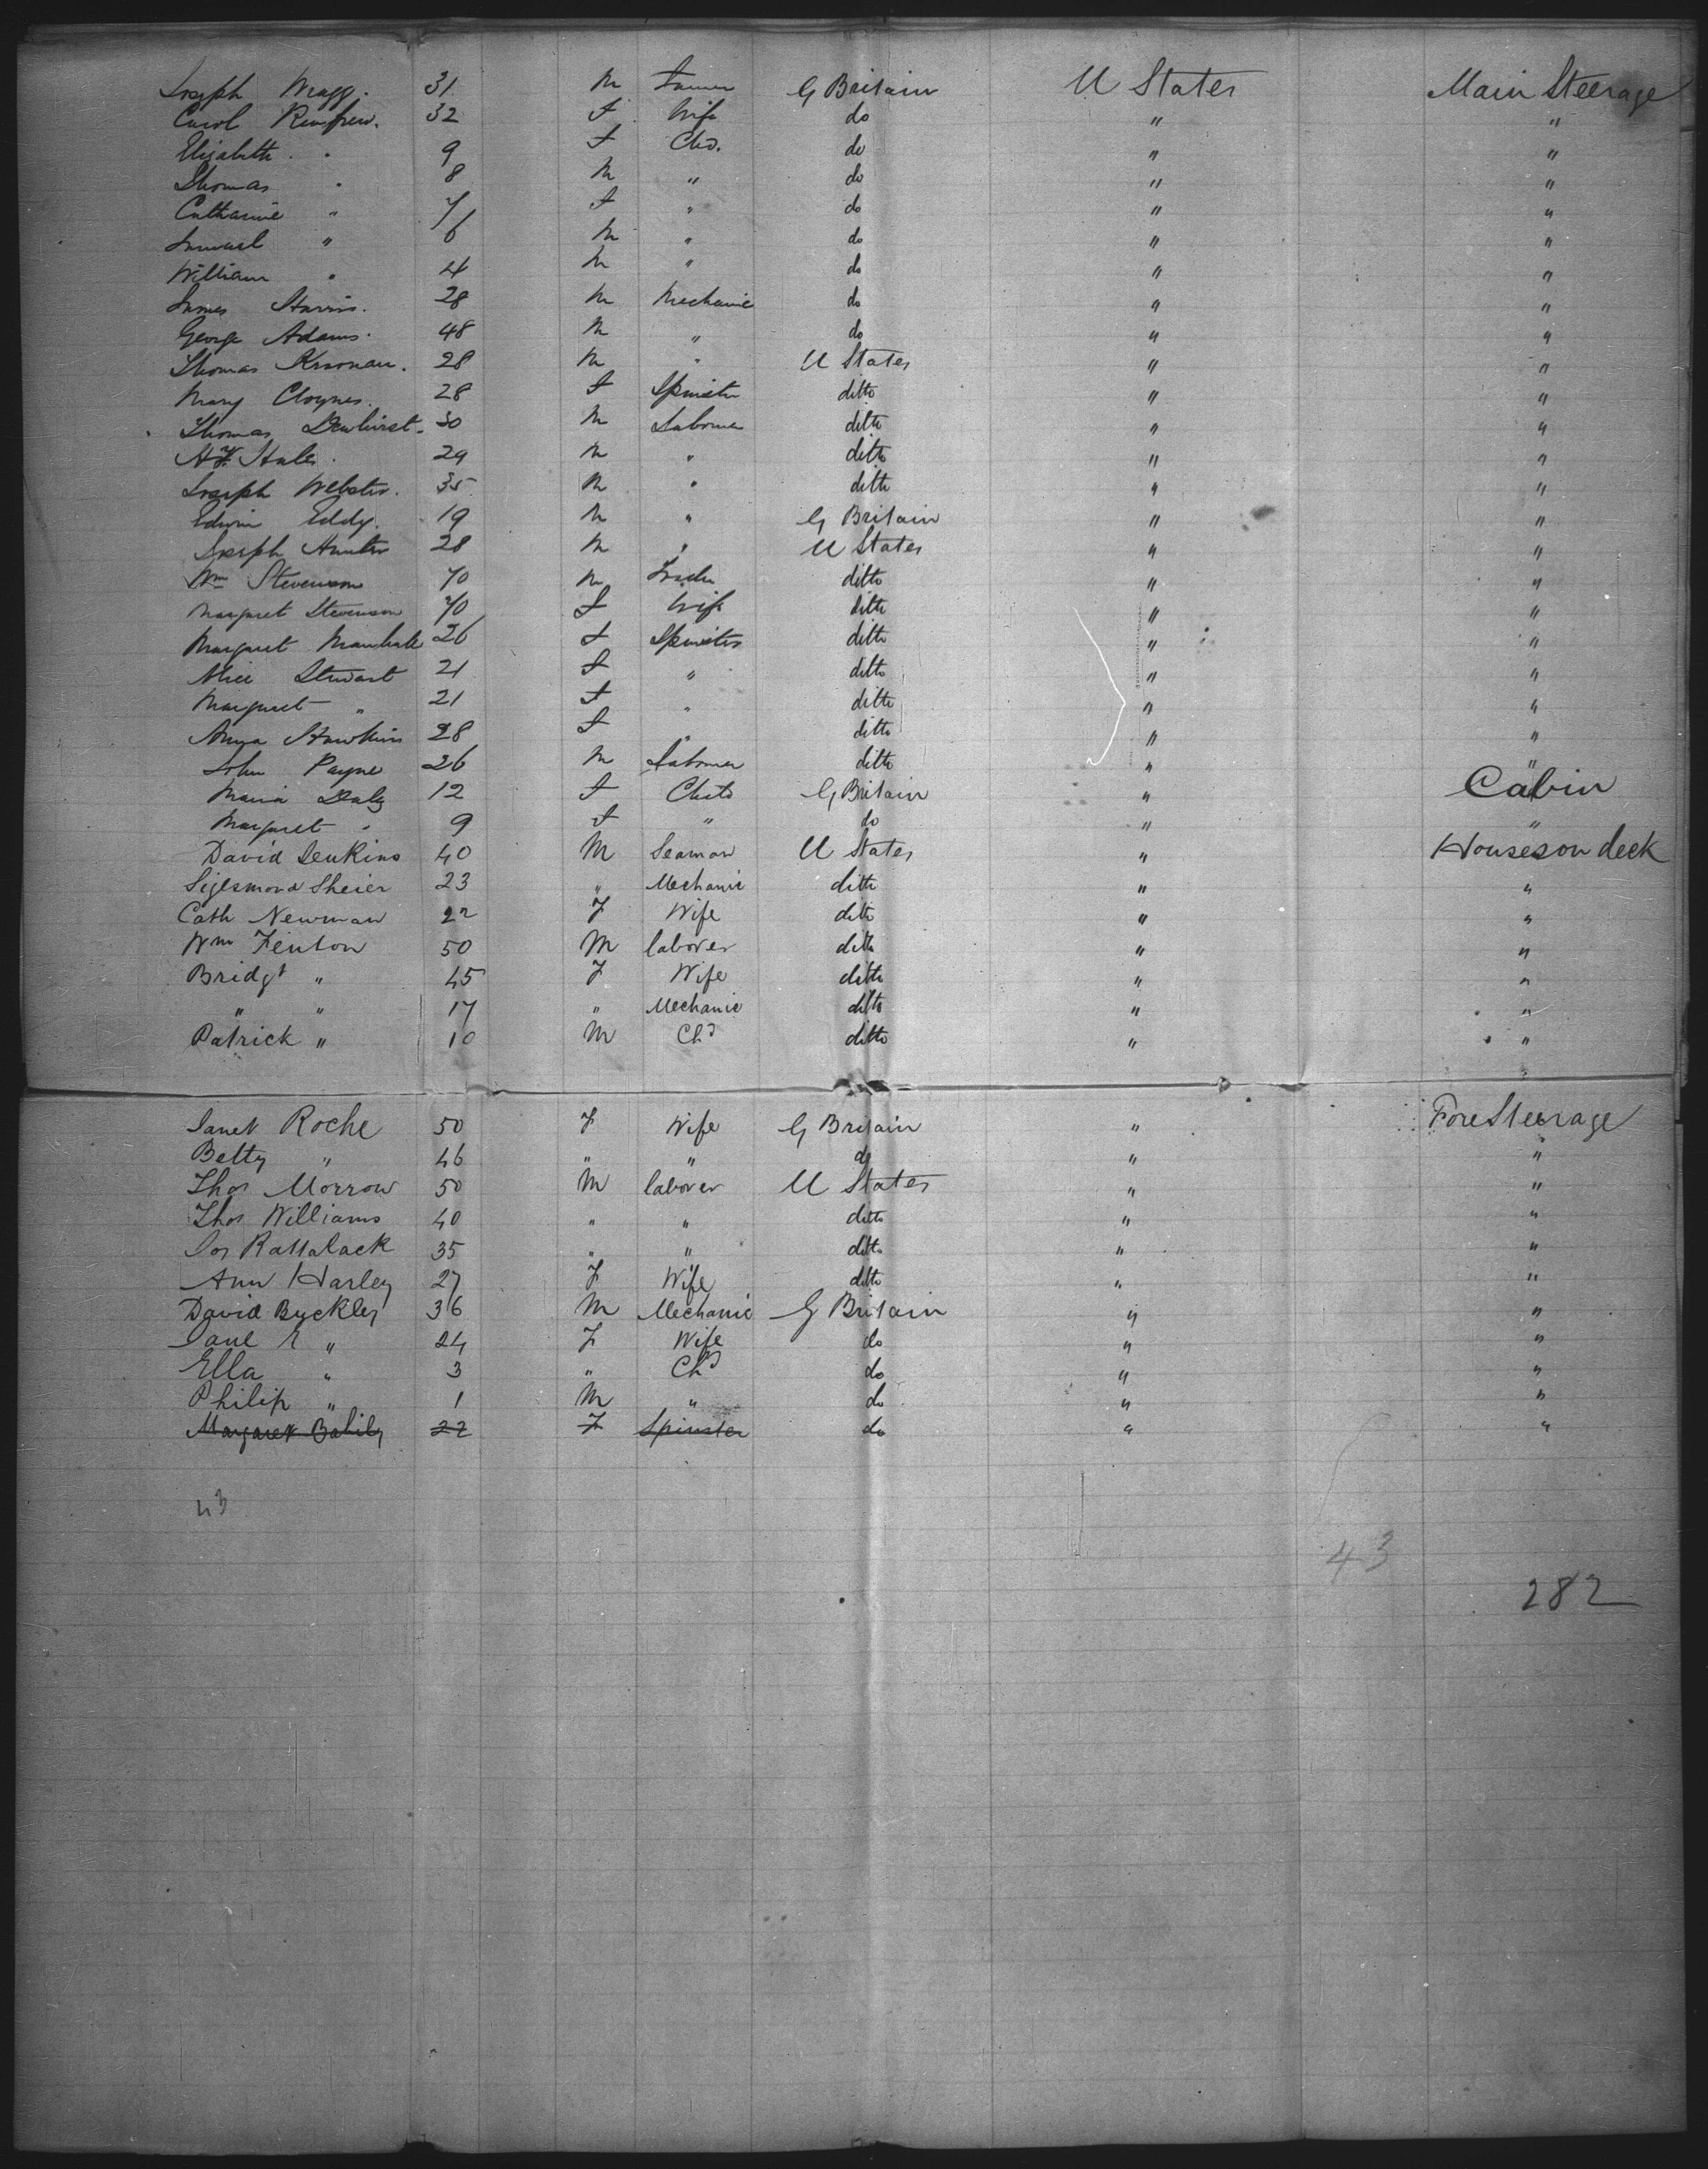 Joseph Wragg. 31 M Farmer G Britain U States Main Steerage
Carol Renfrew. 32 F Wife do " "
Elizabeth " 9 F Chd. do " "
Thomas " 8 M " do " "
Catharine " 7 F " do " "
Samuel " 6 M " do " "
William " 4 M " do " "
James Harris. 28 M Mechanic do " "
George Adams. 48 M " do " "
Thomas 28 M " U States " "
Mary Cloynes. 28 F Spinster ditto " "
Thomas Dewhirst. 30 M Labourer ditto " "
Hales. 29 M " ditto " "
Joseph Webster. 35 M " ditto " "
Edwin Eddy. 19 M " G Britain " "
Joseph Hunter 28 M " U States " "
Wm Stevenson 70 M ditto " "
Margaret Stevenson 70 F Wife ditto " "
Margaret 26 F Spinster ditto " "
Alice Stewart 21 F " ditto " "
Margaret " 21 F " ditto " "
Anna Hawkins 28 F " ditto " "
John Payne 26 M Labourer ditto " "
Maria Daly 12 F G Britain " Cabin
Margaret " 9 F " do " "
David Jenkins 40 M Seaman U States " Houses on deck
Sigesmond Sheier 23 " Mechanic ditto " "
Cath Newman 22 F Wife ditto " "
Wm Fenton 50 M laborer ditto " "
Bridgt " 45 F Wife ditto " "
" " 17 " Mechanic ditto " "
Patrick " 10 M Chd ditto " "
Janet Roche 50 F Wife G Britain " Fore Steerage
Betty " 46 " " do " "
Thos Morrow 50 M laborer U States " "
Thos Williams 40 " " ditto " "
Jos Rattalack 35 " " ditto " "
Ann Harley 27 F Wife ditto " "
David Buckley 36 M Mechanic G Britain " "
Jane E " 24 F Wife do " "
Ella " 3 " Chd do " "
Philip " 1 M " do " "
Margaret Bahily 22 F Spinster do " "
43
43
282